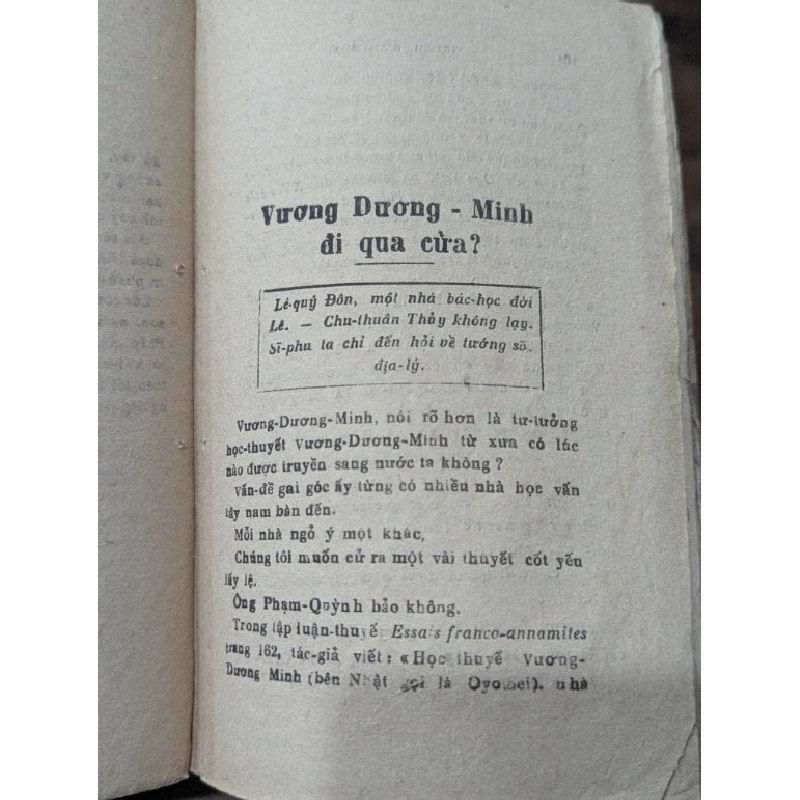 Vương Dương - Minh
đi qua cửa?
Lê-quý Đôn, một nhà bác-học đời
Lê. — Chu-thuân Thủy không lạy.
Sĩ-phu ta chỉ đến hỏi về tướng số,
địa-lý.
Vương-Dương-Minh, nói rõ hơn là tư-tưởng
học-thuyết Vương-Dương-Minh từ xưa có lúc
nào được truyền sang nước ta không ?
Vấn-đề gai góc ấy từng có nhiều nhà học vấn
tây nam bàn đến.
Mỗi nhà ngỏ ý một khác,
Chúng tôi muốn cử ra một vài thuyết cốt yến
lấy lệ.
Ông Phạm-Quỳnh bảo không.
Trong tập luận-thuyế Essais franco-annamites
trang 162, tác-giả viết : «Học thuyế Vương-
Dương Minh (bên Nhật gọi là Oyomei), nhà